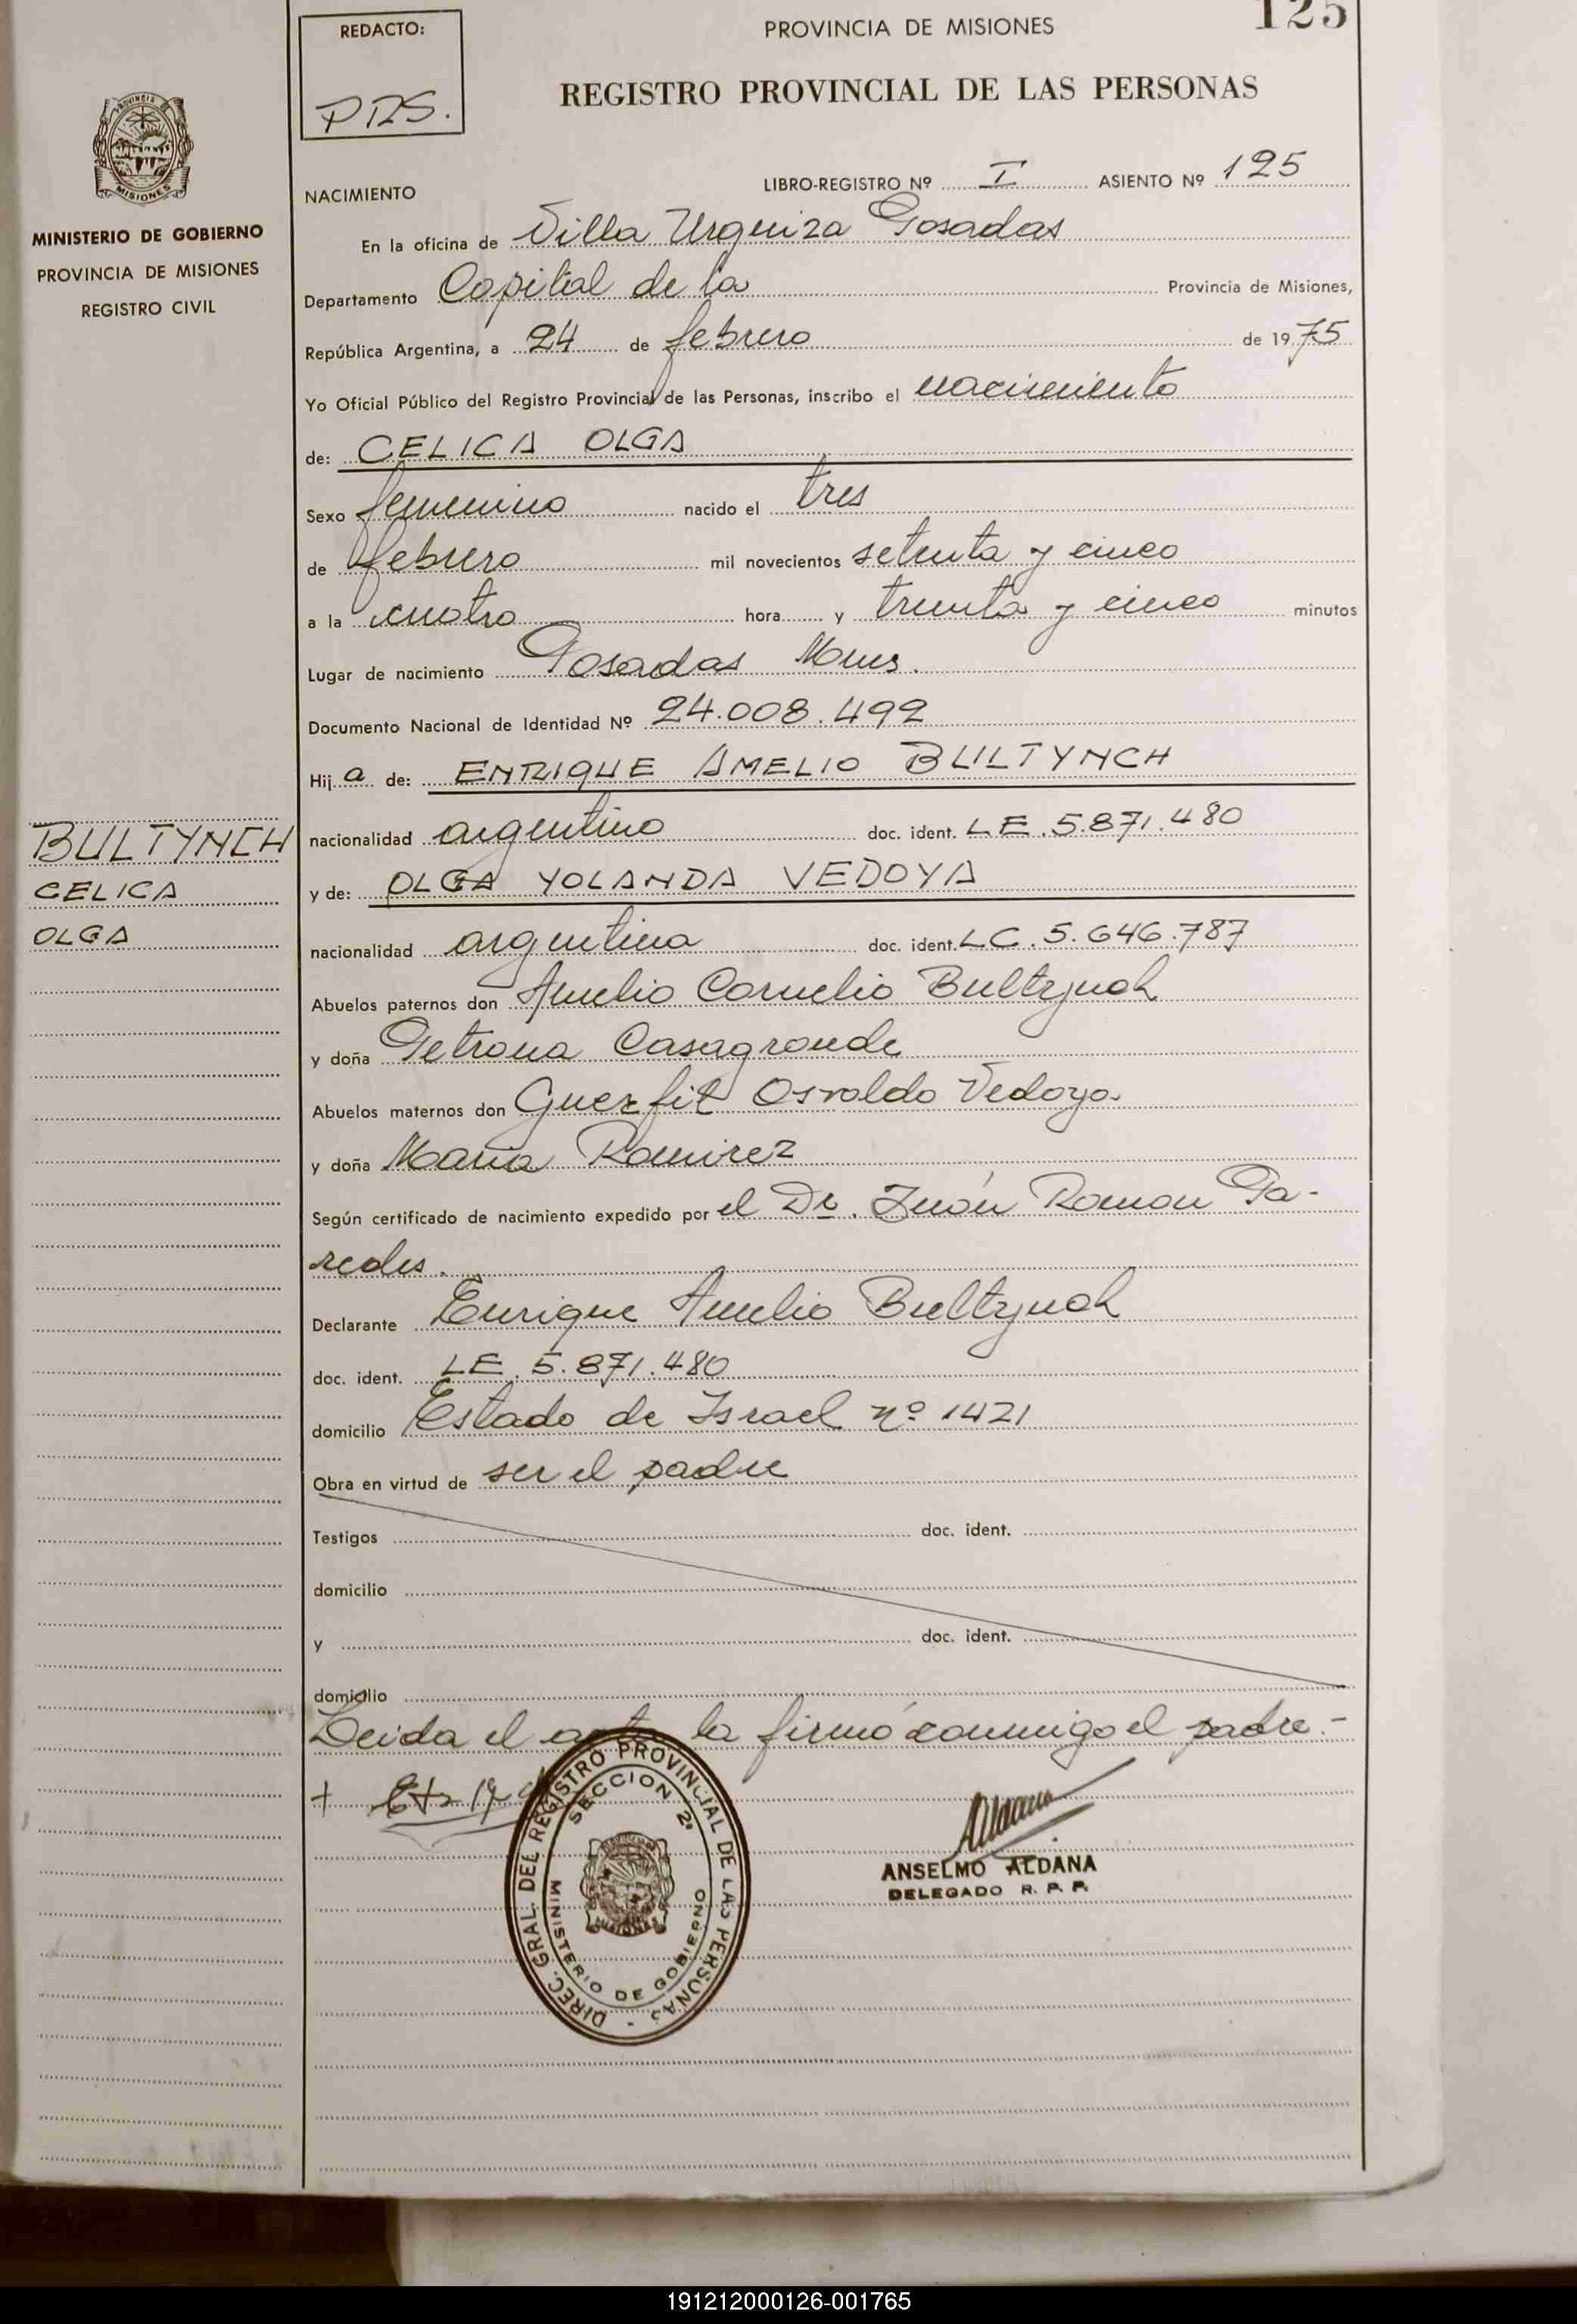 125
REDACTO:
PROVINCIA DE MISIONES
REGISTRO PROVINCIAL DE LAS PERSONAS
PROVINCIA DE
MISIONES
MINISTERIO DE GOBIERNO
PROVINCIA DE MISIONES
REGISTRO CIVIL
NACIMIENTO
LIBRO-REGISTRO Nº I ASIENTO Nº 125
En la oficina de Villa Urquiza Posadas
Departamento Capital de la Provincia de Misiones,
República Argentina, a 24 de febrero de 1975
Yo Oficial Público del Registro Provincial de las Personas, inscribo el nacimiento
de: CELICA OLGA
Sexo femenino nacido el tres
de febrero mil novecientos setenta y cinco
a la cuatro hora y treinta y cinco minutos
Lugar de nacimiento Posadas Mnes.
Documento Nacional de Identidad Nº 24.008.492
Hij a de: ENRIQUE AMELIO BULTYNCH
nacionalidad argentino doc. ident. LE.5.871.480
y de: OLGA YOLANDA VEDOYA
nacionalidad argentina doc. ident. LC.5.646.787
BULTYNCH
CELICA
OLGA
Abuelos paternos don Amelio Cornelio Bultynch
y doña Petrona Casagrande
Abuelos maternos don Osvaldo Vedoya
y doña María Ramirez
Según certificado de nacimiento expedido por el Dr. Juán Ramon Pa-
redes.
Declarante Enrique Amelio Bultynch
doc. ident. LE.5.871.480
domicilio Estado de Israel nº 1421
Obra en virtud de ser el padre
Testigos doc. ident.
domicilio
y doc. ident.
domicilio
Leida el acta la firmó conmigo el padre.-
DIREC. GRAL. DEL REGISTRO PROVINCIAL DE LAS PERSONAS -
SECCION 2ª
MINISTERIO DE GOBIERNO
MISIONES
Aldana
ANSELMO ALDANA
DELEGADO R. P. P.
191212000126-001765